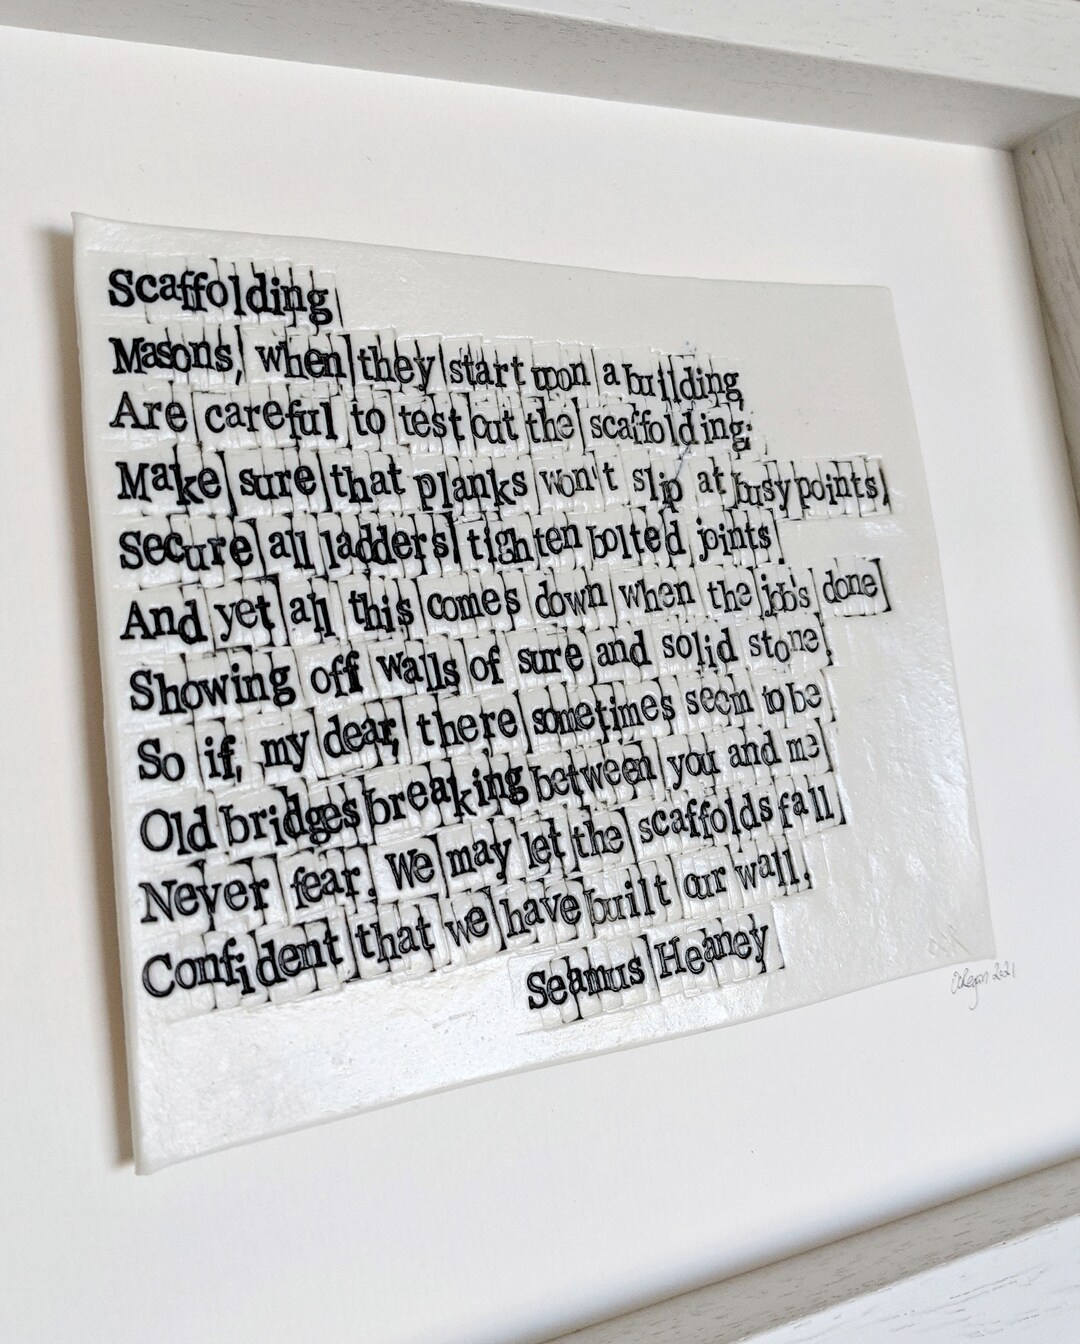 Scaffolding
Masons, when they start upon a building
Are careful to test out the scaffolding;
Make sure that planks won't slip at busy points,
Secure all ladders, tighten bolted joints.
And yet all this comes down when the job's done
Showing off walls of sure and solid stone.
So if, my dear, there sometimes seem to be
Old bridges breaking between you and me
Never fear. We may let the scaffolds fall
Confident that we have built our wall.
Seamus Heaney
O'Regan 2021